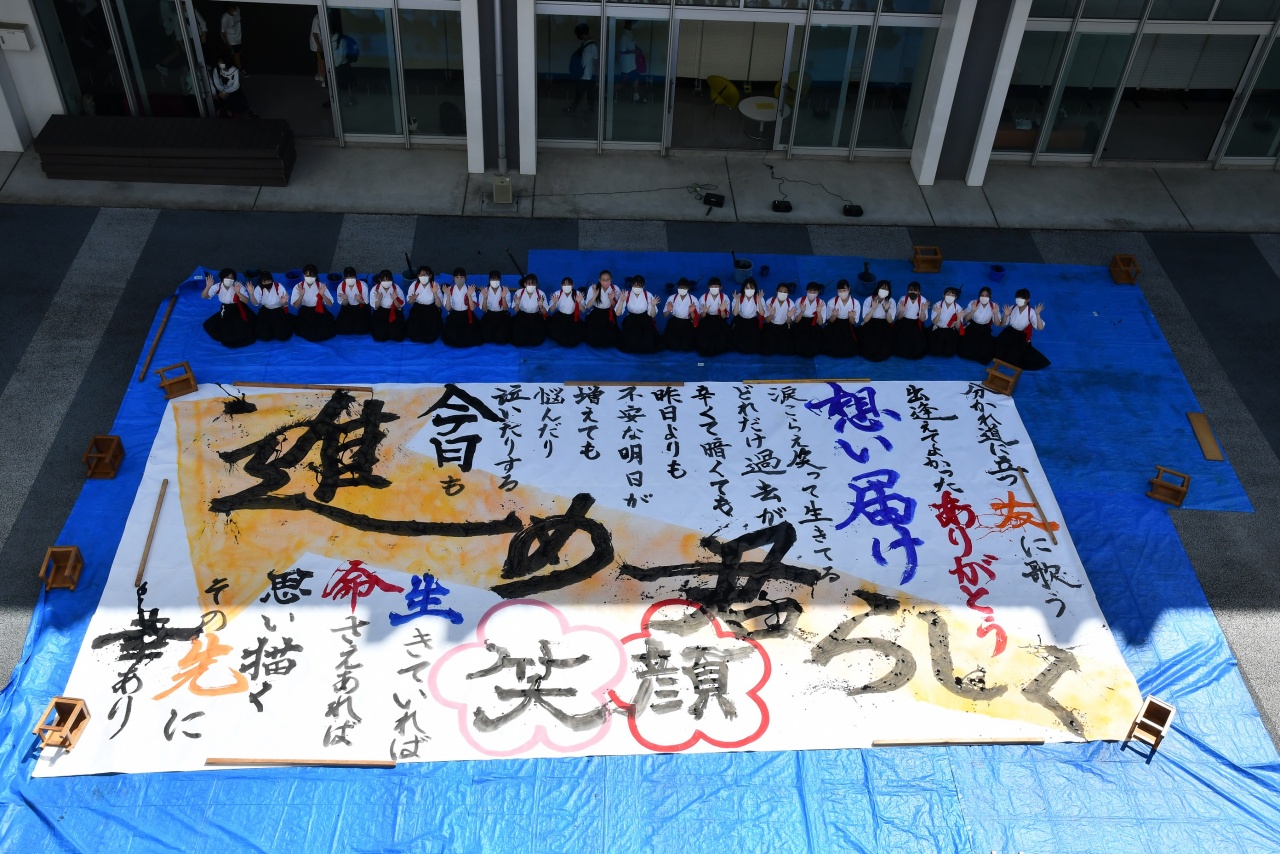 分かれ道に立つ友に歌う
出逢えてよかったありがとう
想い届け
涙こらえ って生きてる
どれだけ過去が
辛くて暗くても
昨日よりも
不安な明日が
増えても
悩んだり
泣いたりする
今日も
進め君らしく
笑顔
生きていれば
命さえあれば
思い描く
その先に
華あり